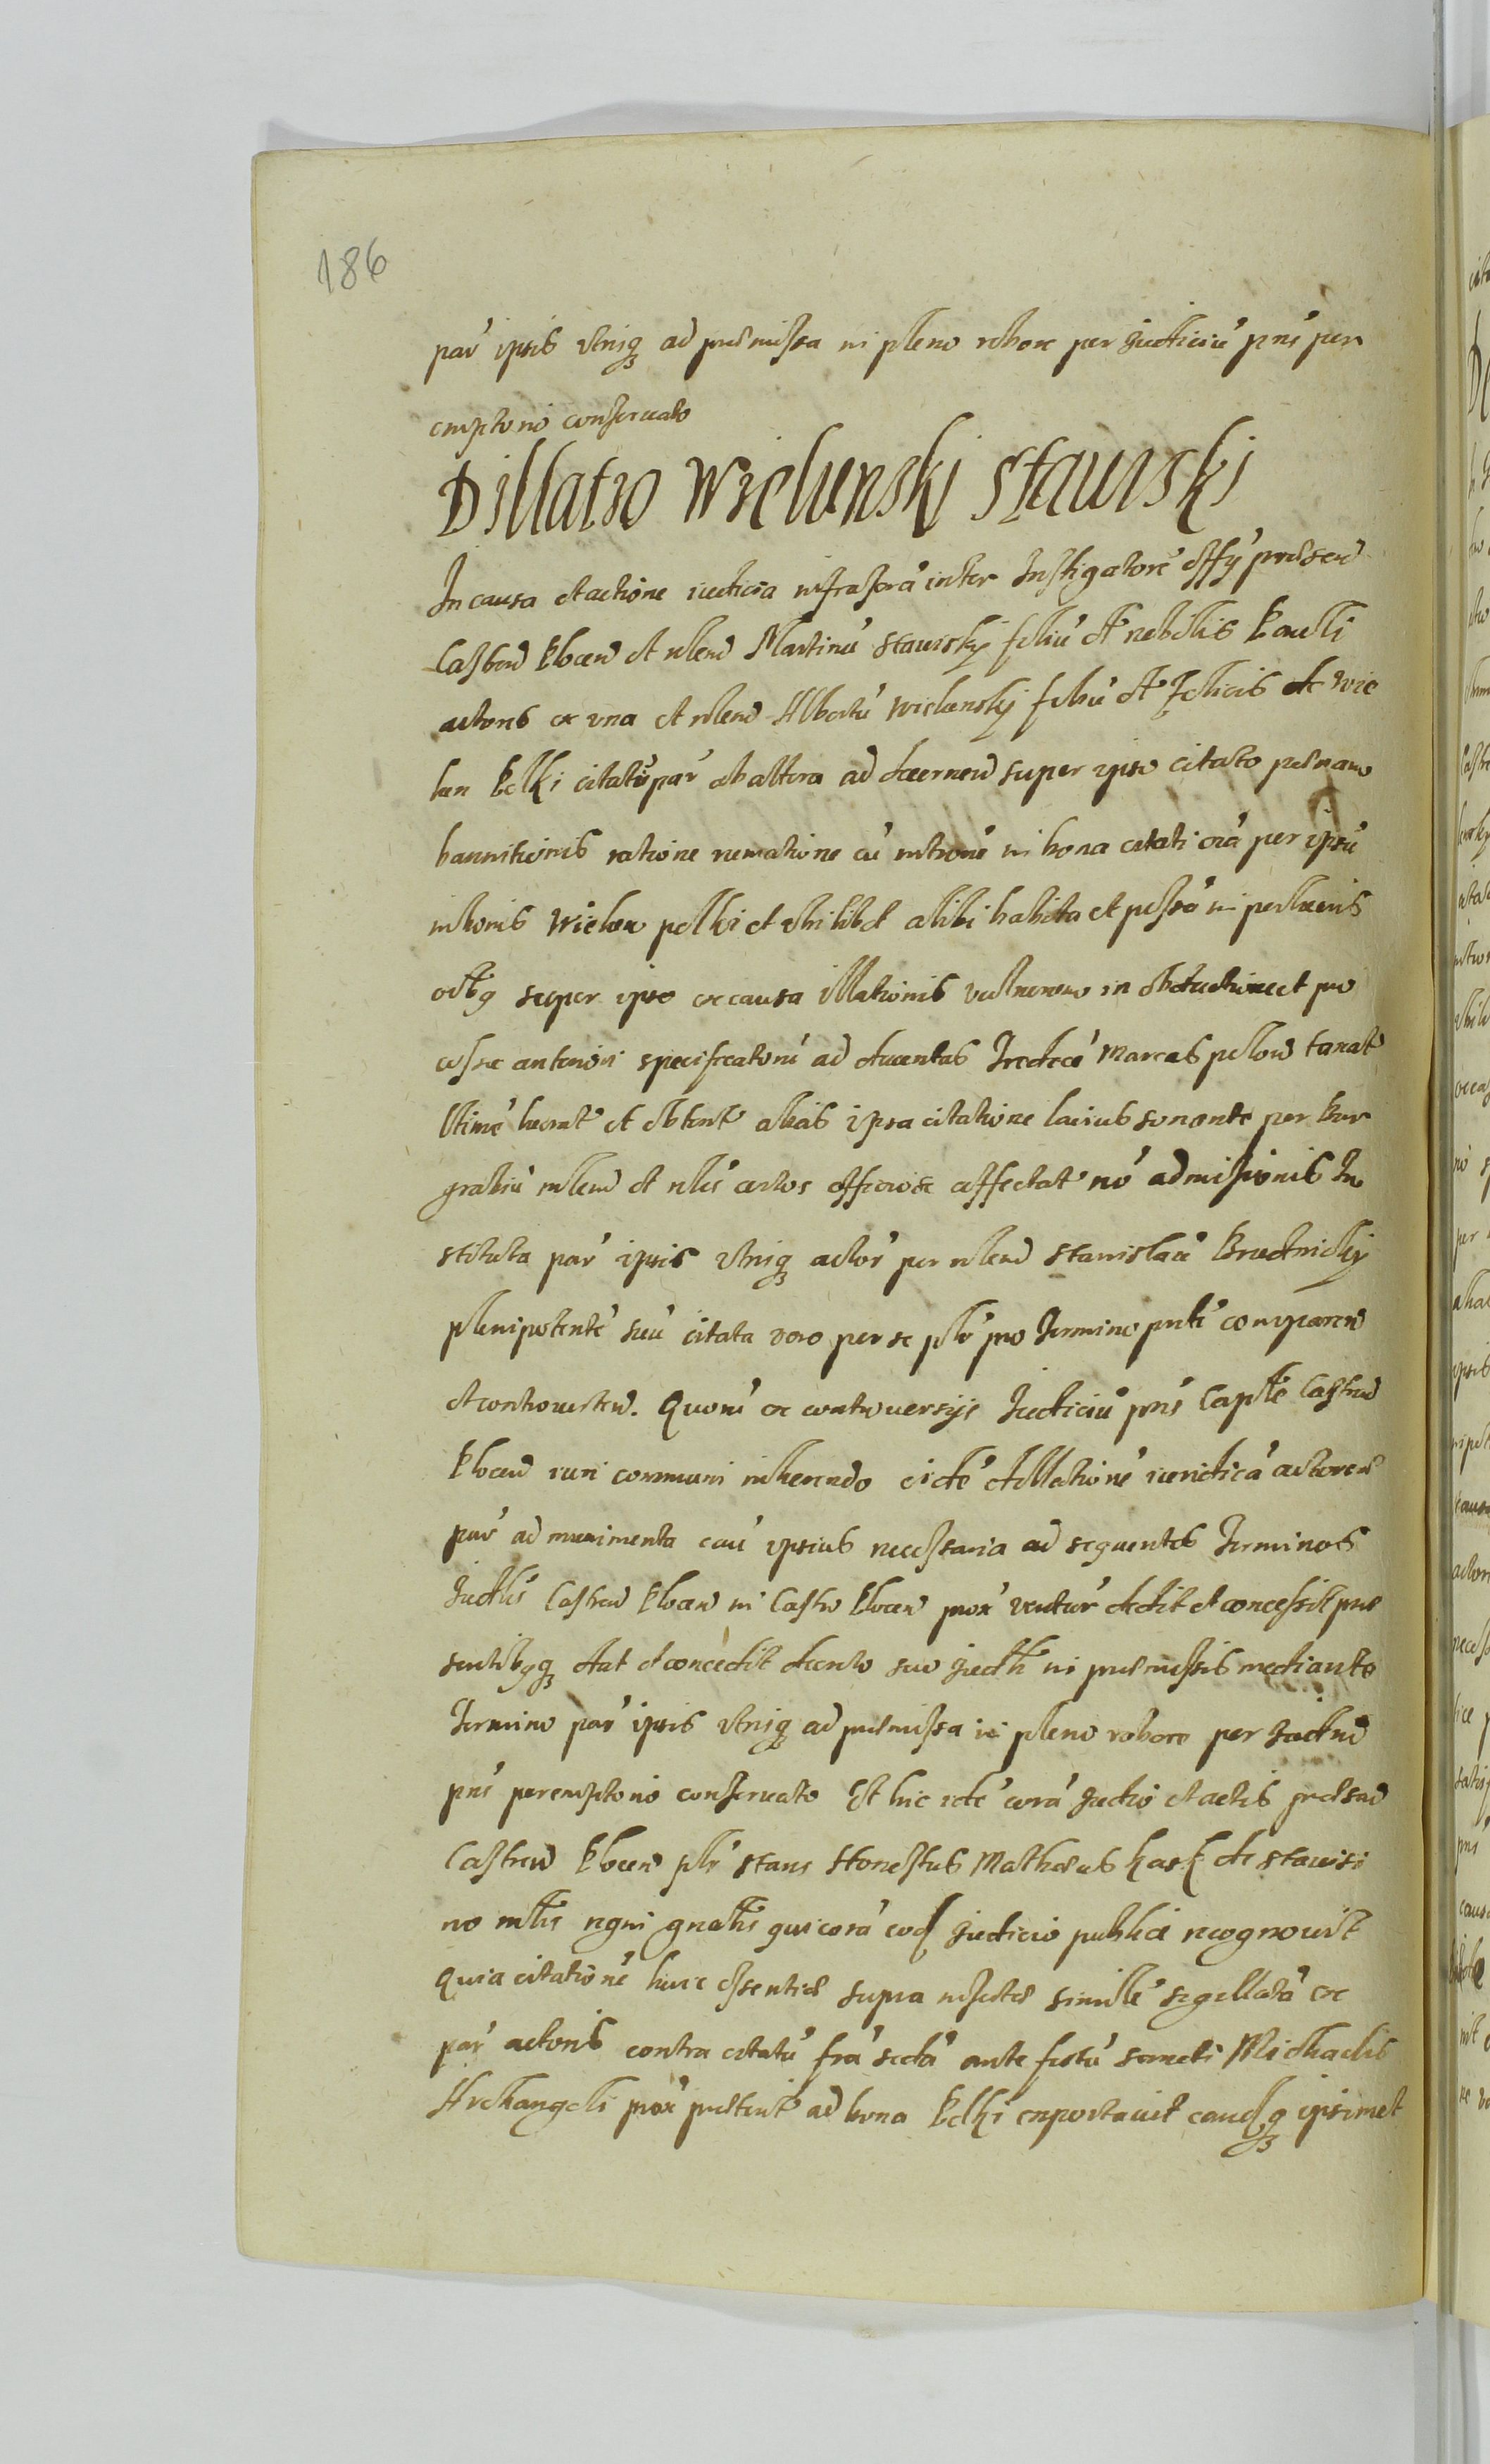 186
par' ipsis utrisq3 ad praemissa in pleno robore per Judiciu' pns' per
emptorio conservato
Dillatio Wielunski Stawiski
In causa et actione iudicia infrascra' inter Instigatore' offy praesend
Castren Plocen et nlem Martinu' Stawisky filiu' ol' nobilis Pauli
actoris ex una et nlem Albertu' Wielunsky filiu' ol' Felicis de Wie
lun Pelki citatu' par' ab altera ad decernend super ipso citato paenam
bannitionis ratione remotione cu' intromne in bona citati oia' per ipsu'
in bonis Wielun pelki et ubilibet alibi habita et possa' in perlucris
super ipso ex causa illationis vulnerum in obductione et pro
cessu anteriori specificatoru' ad ducentas Tredeci' Marcas pollon taxat'
ltime' lucrat' et obtent' alias ipsa citatione latius sonante per Bur
grabiu' nlem et nles' actos officiose affectat' no' admissionis In
stituta par' ipsis utrisq3 actor' per nlem Stanislau' Brudnicky
plenipotente' suu' citata vero per se plr' pro Termino pnti' comparen
et controverten. Quoru' ex controversijs Judiciu' pns' Caple Castren
Plocen iuri communi inherendo eide' dillatione' iuridica' actorea'
par' ad munimenta cau' ipsius necessaria ad sequentes Terminos
Judles' Castren Plocen in Castro Plocen prox' ventur' dedit et concessit prae
sentibgq3 dat et concedit decreto suo Judli in praemissis mediante
Termino par' ipsis utrisq3 ad praemissa in pleno robore per Judiciu
pns' peremptorio conservato Et hic ide' cora' Judio et actis praesen
Castren Plocen plr' stans Honestus Mathaeus Kask de Stawisi
no mlis regni gnalis qui cora' eod Judicio publice recognovit
Quia citatione' huic essentiae supra insertae simile' sigillata' ex
par' actoris contra citatu' fra' secda' ante festu' Sancti Michaelis
Archangeli prox' praeterit' ad bona Pelki exportavit eandq3 ipsimet